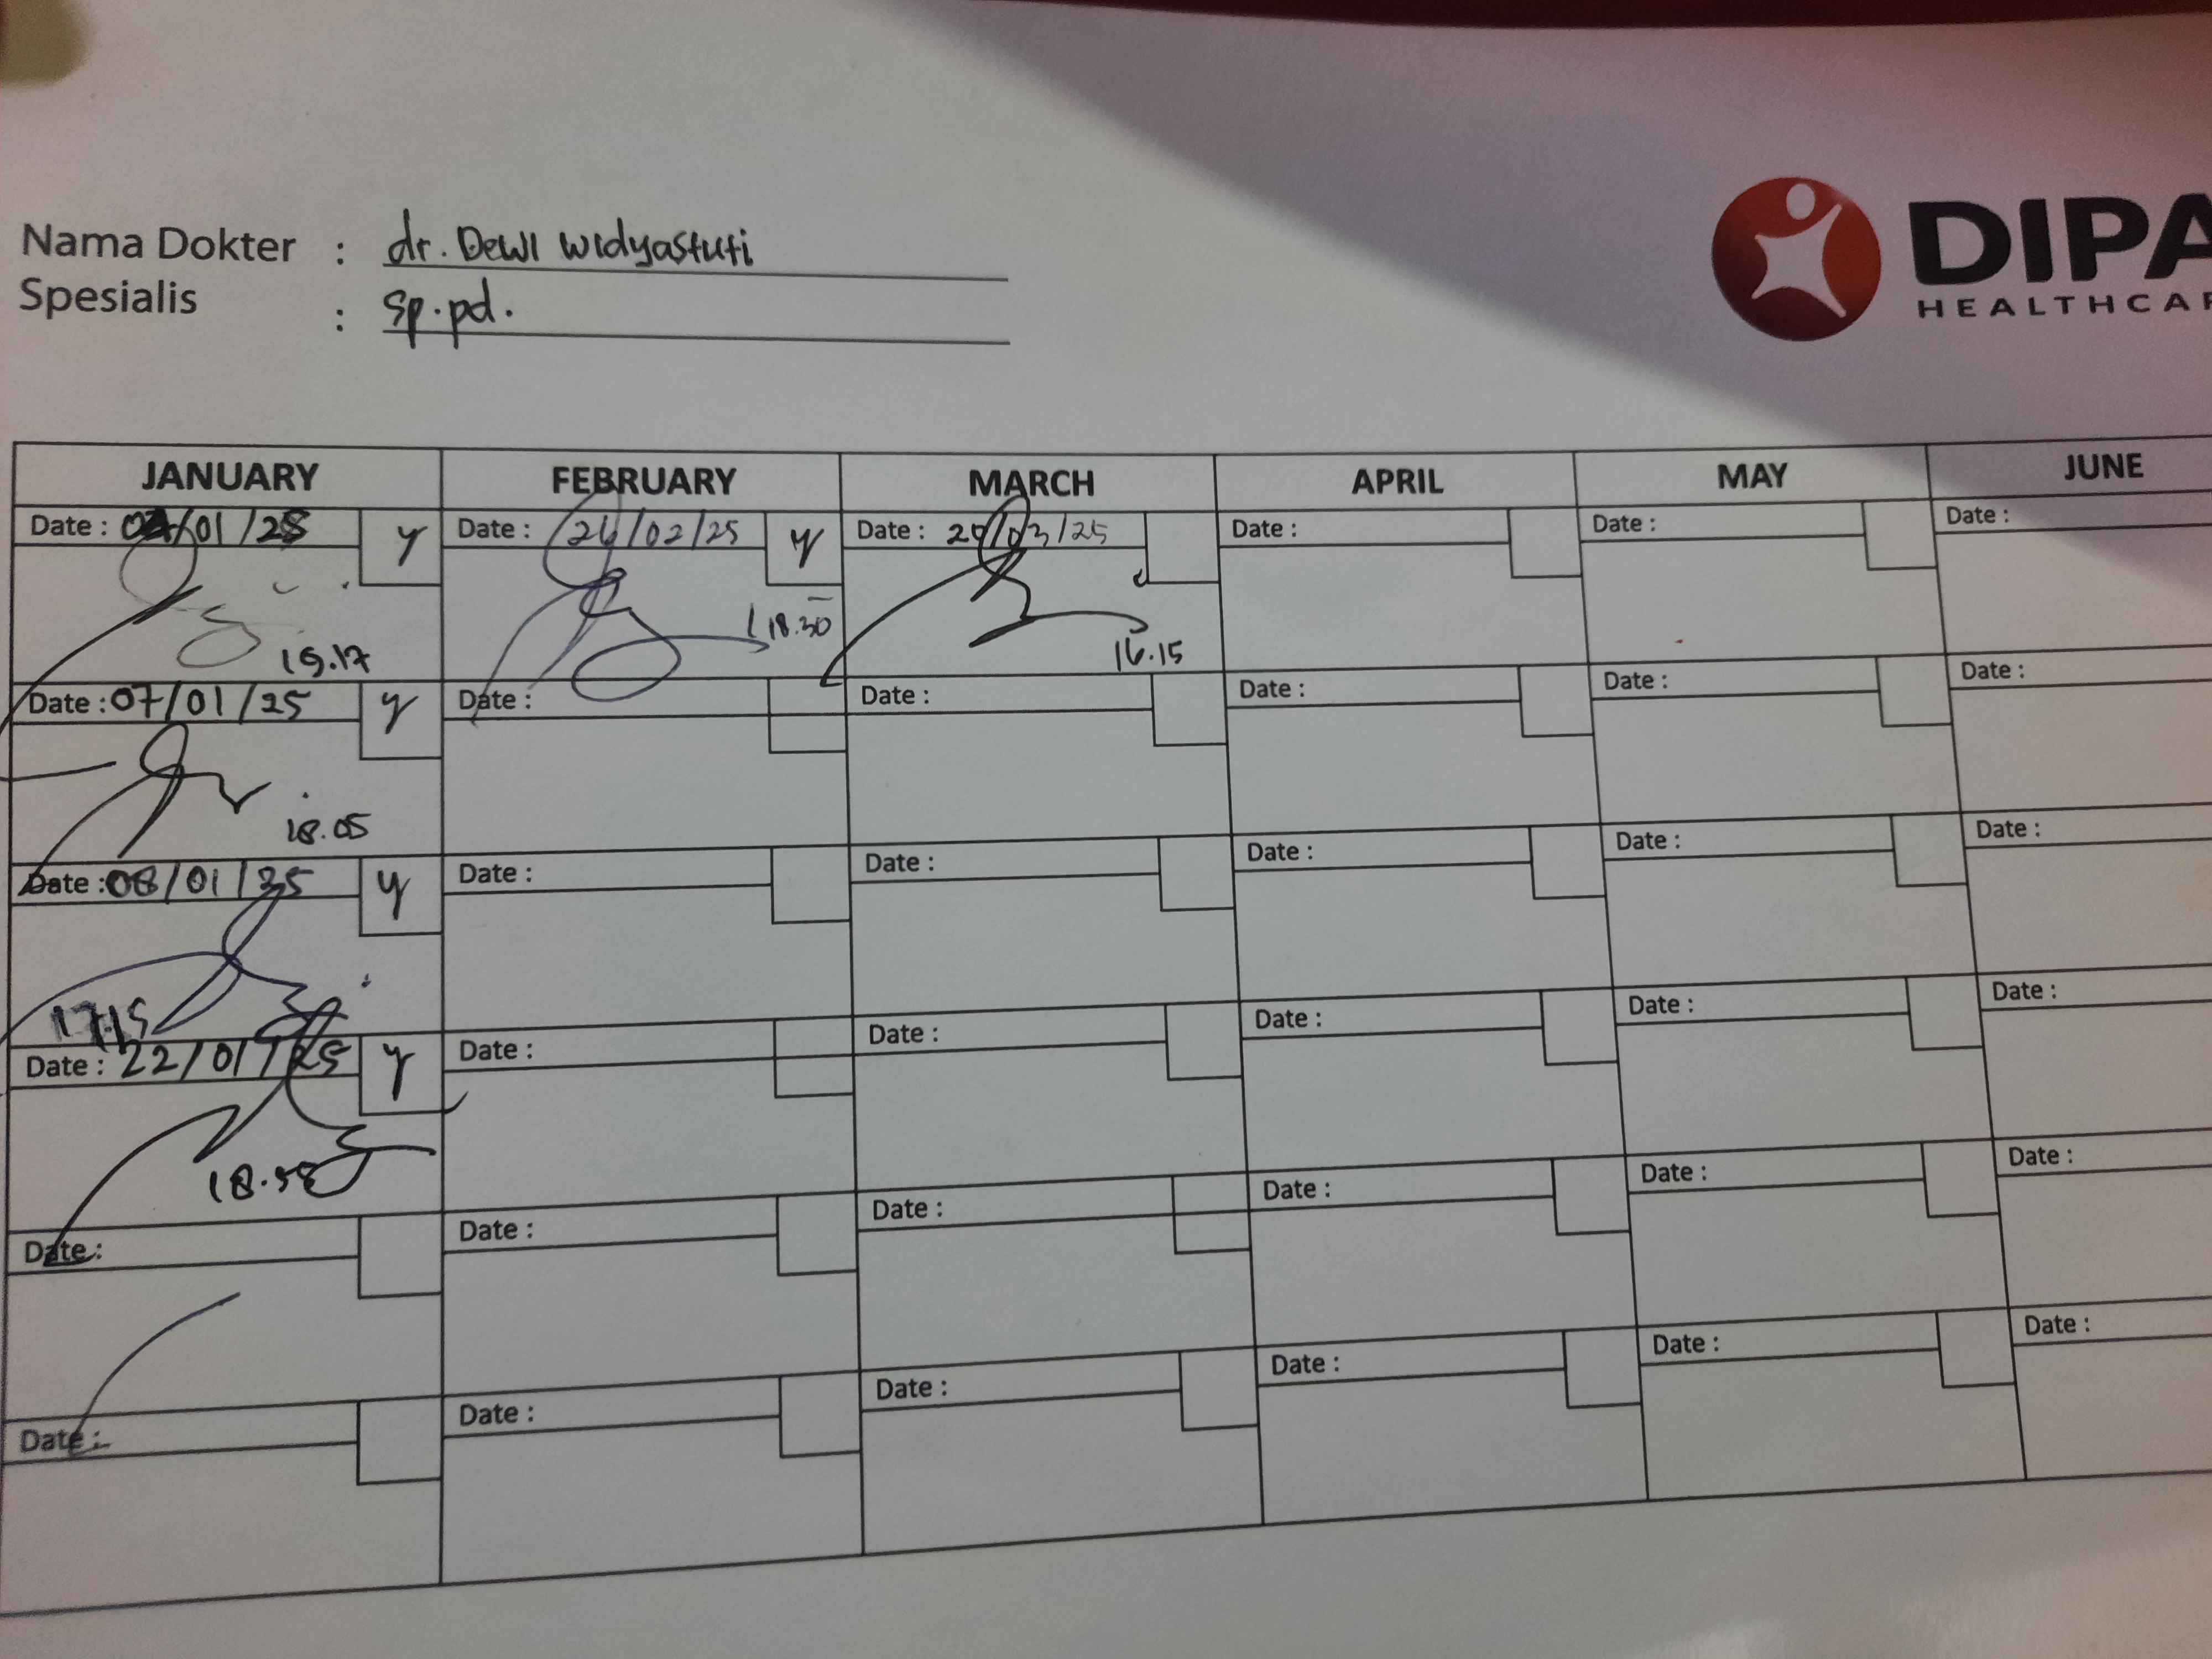 Nama Dokter : dr. Dewi Widyastuti
Spesialis : Sp.pd.
DIPA
HEALTHCAR
JANUARY FEBRUARY MARCH APRIL MAY JUNE
Date : /01/25 y Date : /02/25 y Date : /03/25 Date : Date : Date :
18.30
16.15
Date : 07/01/25 y Date : Date : Date : Date : Date :
18.05
Date : 08/01/25 y Date : Date : Date : Date : Date :
17.15
Date : 22/01/25 y Date : Date : Date : Date : Date :
Date : Date : Date : Date : Date : Date :
Date : Date : Date : Date : Date : Date :